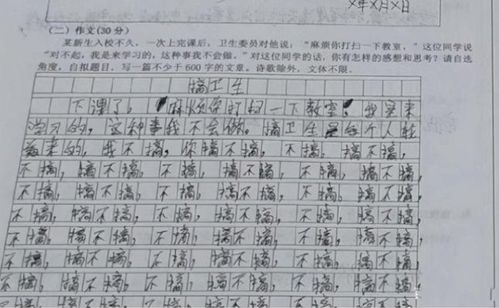 X年X月X日
(二)作文(30分)
某新生入校不久,一次上完课后,卫生委员对他说:“麻烦你打扫一下教室。”这位同学说
“对不起,我是来学习的,这种事我不会做。”对这位同学的话,你有怎样的感想和思考?请自选
角度,自拟题目,写一篇不少于600字的文章。诗歌除外,文体不限。
搞卫生
下课了,麻烦你打扫一下教室,我是来
学习的,这种事我不会做。搞卫生是每个人
来的,我不搞,你搞不搞,不搞,搞不搞,
不搞,搞不搞,不搞,搞不搞,不搞,搞不搞,
不搞,搞不搞,不搞,搞不搞,不搞,搞不搞,
不搞,搞不搞,不搞,搞不搞,不搞,搞不搞,
不搞,搞不搞,不搞,搞不搞,不搞,搞不搞,
不搞,搞不搞,不搞,搞不搞,不搞,搞不搞,
不搞,搞不搞,不搞,搞不搞,不搞,搞不搞,
不搞,搞不搞,不搞,搞不搞,不搞,搞不搞